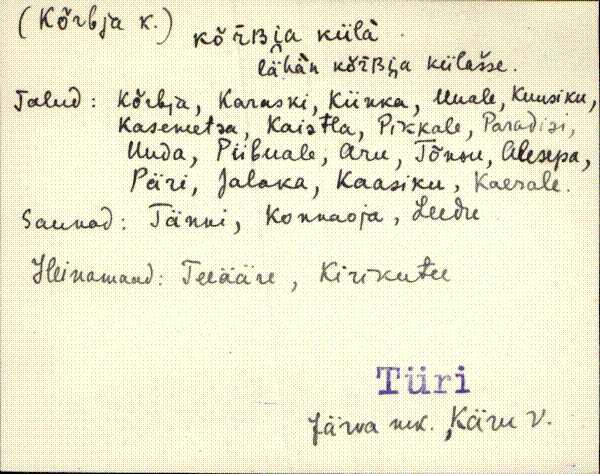 (Kõrbja k.) kõ̆rʙja külà.
lähän kõ̆rʙja külàsse.
Talud: Kõrbja, Karaski, Künka, Uuale, Kuusiku,
Kasemetsa, Kaistla, Pikkale, Paradisi,
Uuda, Piibuale, Aru, Tõnsu, Alesepa,
Päri, Jalaka, Kaasiku, Kaerale.
Saunad: Tänni, Konnaoja, Leedu
Heinamaad: Teeääre, Kirikutee
Türi
Järva mk., Käru v.